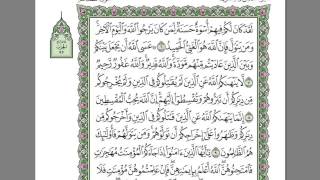 لَقَدْ كَانَ لَكُمْ فِيهِمْ أُسْوَةٌ حَسَنَةٌ لِّمَن كَانَ يَرْجُوا۟ ٱللَّهَ وَٱلْيَوْمَ ٱلْآخِرَ
وَمَن يَتَوَلَّ فَإِنَّ ٱللَّهَ هُوَ ٱلْغَنِيُّ ٱلْحَمِيدُ ٦ عَسَى ٱللَّهُ أَن يَجْعَلَ بَيْنَكُمْ
وَبَيْنَ ٱلَّذِينَ عَادَيْتُم مِّنْهُم مَّوَدَّةً وَٱللَّهُ قَدِيرٌ وَٱللَّهُ غَفُورٌ رَّحِيمٌ ٧
لَّا يَنْهَىٰكُمُ ٱللَّهُ عَنِ ٱلَّذِينَ لَمْ يُقَٰتِلُوكُمْ فِي ٱلدِّينِ وَلَمْ يُخْرِجُوكُم
مِّن دِيَٰرِكُمْ أَن تَبَرُّوهُمْ وَتُقْسِطُوٓا۟ إِلَيْهِمْ إِنَّ ٱللَّهَ يُحِبُّ ٱلْمُقْسِطِينَ
٨ إِنَّمَا يَنْهَىٰكُمُ ٱللَّهُ عَنِ ٱلَّذِينَ قَٰتَلُوكُمْ فِي ٱلدِّينِ وَأَخْرَجُوكُم
مِّن دِيَٰرِكُمْ وَظَٰهَرُوا۟ عَلَىٰٓ إِخْرَاجِكُمْ أَن تَوَلَّوْهُمْ وَمَن يَتَوَلَّهُمْ فَأُو۟لَٰٓئِكَ
هُمُ ٱلظَّٰلِمُونَ ٩ يَٰٓأَيُّهَا ٱلَّذِينَ ءَامَنُوٓا۟ إِذَا جَآءَكُمُ ٱلْمُؤْمِنَٰتُ مُهَٰجِرَٰتٍ
فَٱمْتَحِنُوهُنَّ ٱللَّهُ أَعْلَمُ بِإِيمَٰنِهِنَّ فَإِنْ عَلِمْتُمُوهُنَّ مُؤْمِنَٰتٍ